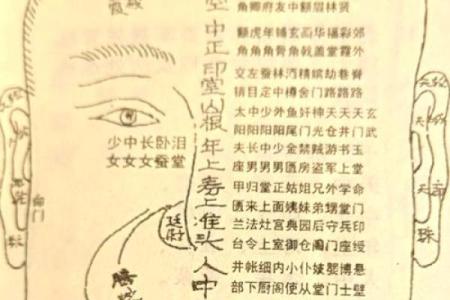 角卿府友中额眉林贤
额虎年辅玄高华福彩郊
角角角角骨角戟盖堂霞外
左交蚕林酒精嫔劫巷
目中门路路路
太中少外鱼奸神天天天玄
阳阳阳阳尾门光仓井门武
长中少金禁贼游书玉
男男男匮房盗军上堂
甲归堂正姑姐兄外学命
匮来上面姨妹弟甥堂门
兰法灶宫典园后守兵印
台令上室御仓阁门座绶
井帐细内小仆妓婴博悬
部下厨阁使从堂门士壁
空中正印堂山根年上寿上准头人中
少中长卧泪
女女女蚕堂
廷尉
命门
珠